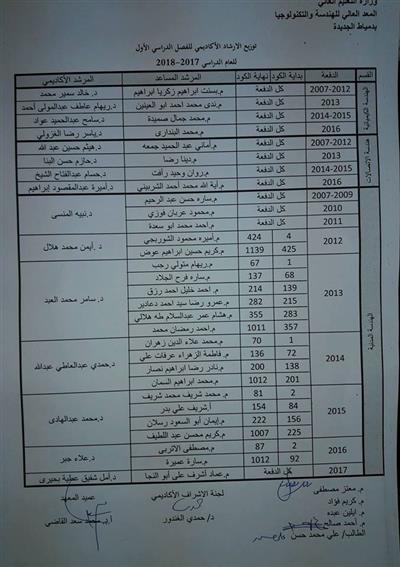 وزارة التعليم العالي
المعهد العالي للهندسة والتكنولوجيا
بدمياط الجديدة
توزيع الارشاد الأكاديمي للفصل الدراسي الأول
للعام الدراسي 2017-2018
القسم الدفعة بداية الكود نهاية الكود المرشد المساعد المرشد الأكاديمي
الهندسة الكيميائية 2007-2012 كل الدفعة م.بسنت ابراهيم زكريا ابراهيم د.خالد سمير محمد
2013 كل الدفعة م.ندى محمد احمد ابو العينين د.ريهام عاطف عبدالمولى أحمد
2014-2015 كل الدفعة م.محمد جمال صميدة د.سامح عبدالحميد عواد
2016 كل الدفعة م.محمد البندارى د.ياسر رضا الغزولي
هندسة الاتصالات 2007-2012 كل الدفعة م.أماني عبد الحميد جمعه د.هيثم حسين عبد الله
2013 كل الدفعة م.دينا رضا د.حازم حسن البنا
2014-2015 كل الدفعة م.روان وحيد رأفت د.حسام عبدالفتاح الشيخ
2016 كل الدفعة م.آية الله محمد أحمد الشربيني د.أميرة عبدالمقصود إبراهيم
الهندسة المدنية 2007-2009 كل الدفعة م.ساره حسن عبد الرحيم د.نبيه المنسى
2010 كل الدفعة م.محمود عريان فوزي
2011 كل الدفعة م.احمد محمد ابو سعدة
2012 4 424 م.أميره محمود الشوربجي د.أيمن محمد هلال
425 1139 م.كريم حسين ابراهيم عوض
2013 1 67 م.ريهام متولي رجب د.سامر محمد العبد
68 137 م.ساره فرج الجلاد
139 214 م.احمد خليل احمد رزق
215 282 م.عمرو رضا سيد احمد دعادير
283 355 م.هشام عمر عبدالسلام طه هلالي
357 1011 م.احمد رمضان محمد
2014 1 70 م.محمد علاء الدين زهران د.حمدي عبدالعاطي عبدالله
72 136 م.فاطمة الزهراء عرفات علي
138 200 م.نادر رضا ابراهيم نصار
201 1012 م.محمد ابراهيم السمان
2015 2 81 م.محمد شريف محمد شريف د.محمد عبدالهادى
84 154 أ.شريف علي بدر
156 222 م.إيمان أبو السعود رسلان
225 1007 م.كريم محسن عبد اللطيف
2016 2 87 م.مصطفى الاتربى د.علاء جبر
92 1012 م.سارة عميرة
2017 كل الدفعة م.عماد أشرف على أبو النجا د.أمل شفيق عطية بحيرى
م. معتز مصطفى
م. كريم فؤاد
م. ايلين عبده
م. أحمد صالح
الطالب/ علي محمد حسن
لجنة الاشراف الأكاديمي
د/حمدي الغندور
عميد المعهد
أ.د. محمد سعد القاضي